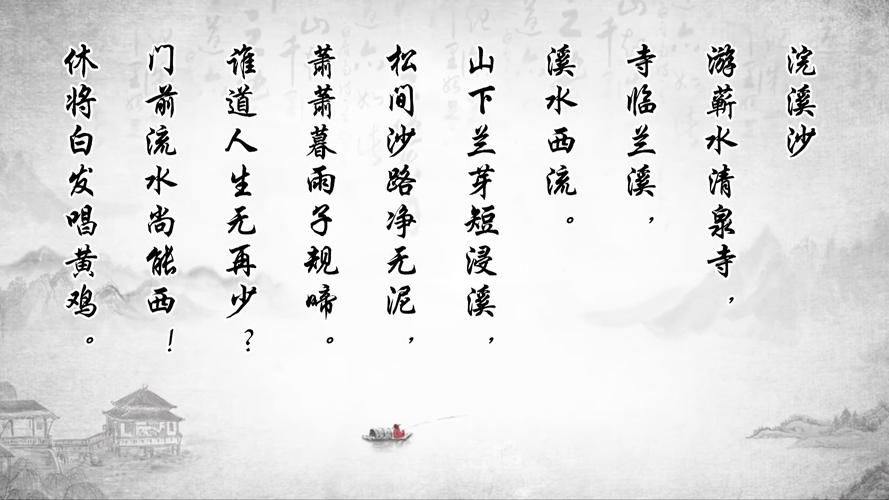 浣溪沙
游蕲水清泉寺，
寺临兰溪，
溪水西流。
山下兰芽短浸溪，
松间沙路净无泥，
萧萧暮雨子规啼。
谁道人生无再少？
门前流水尚能西！
休将白发唱黄鸡。